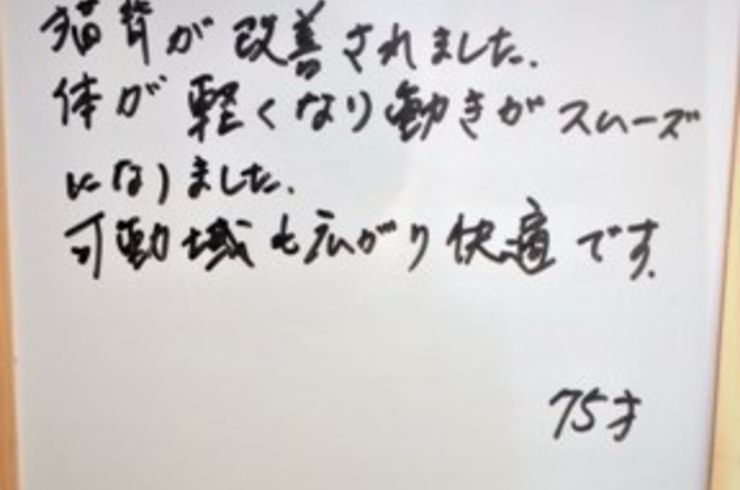 猫背が改善されました.
体が軽くなり動きがスムーズ
になりました.
可動域も広がり快適です.
75才